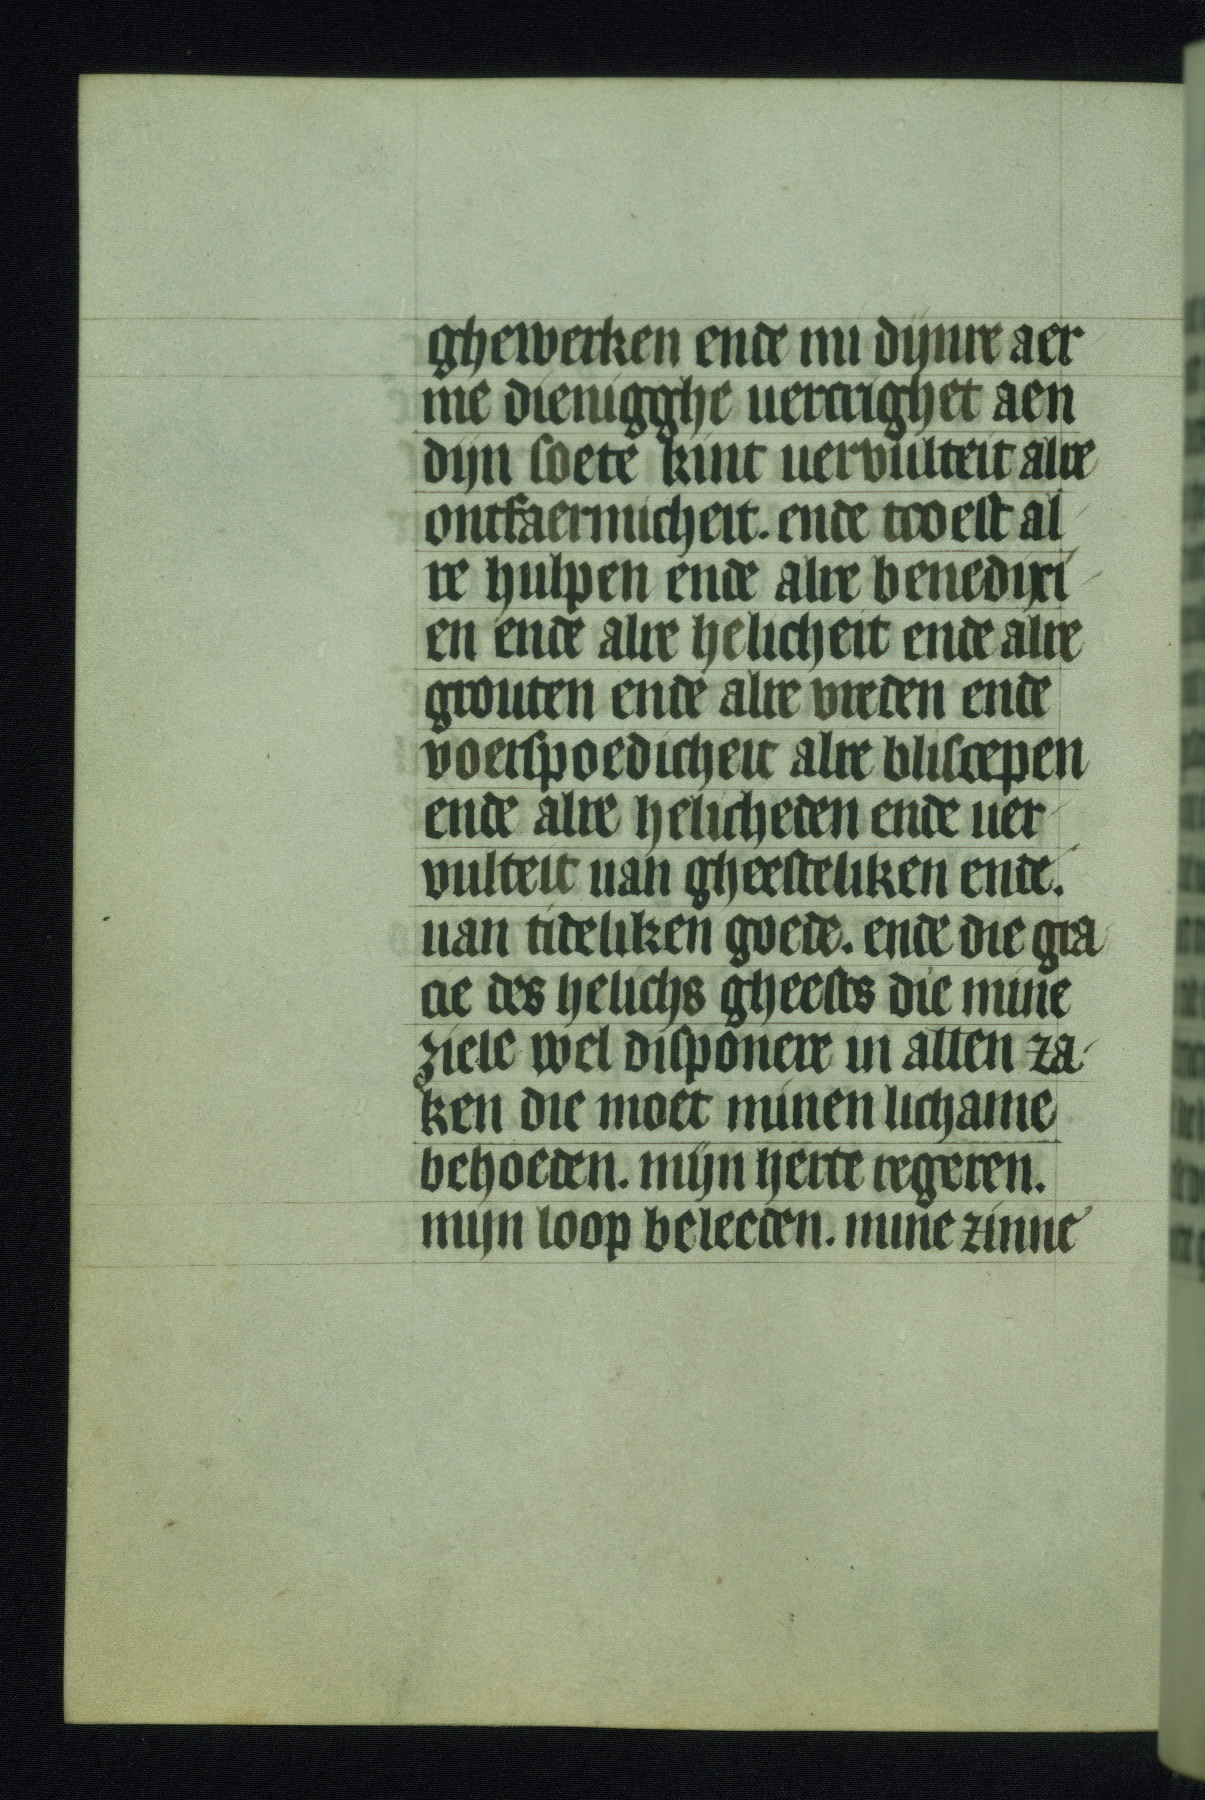 ghewerken ende mi dijnre aer
me dienigghe uercrighet aen
dijn soete kint uervulteit alre
ontfaermicheit. ende troest al
re hulpen ende alre benedixi
en ende alre helicheit ende alre
grouten ende alre vreden ende
voerspoedicheit alre bliscepen
ende alre helicheden ende uer
vulteit uan gheesteliken ende.
uan tideliken goede. ende die gra
cie des helichs gheests die mine
ziele wel disponere in allen za
ken die moet minen lichame
behoeden. mijn herte regeren.
mijn loop beleeden. mine zinne